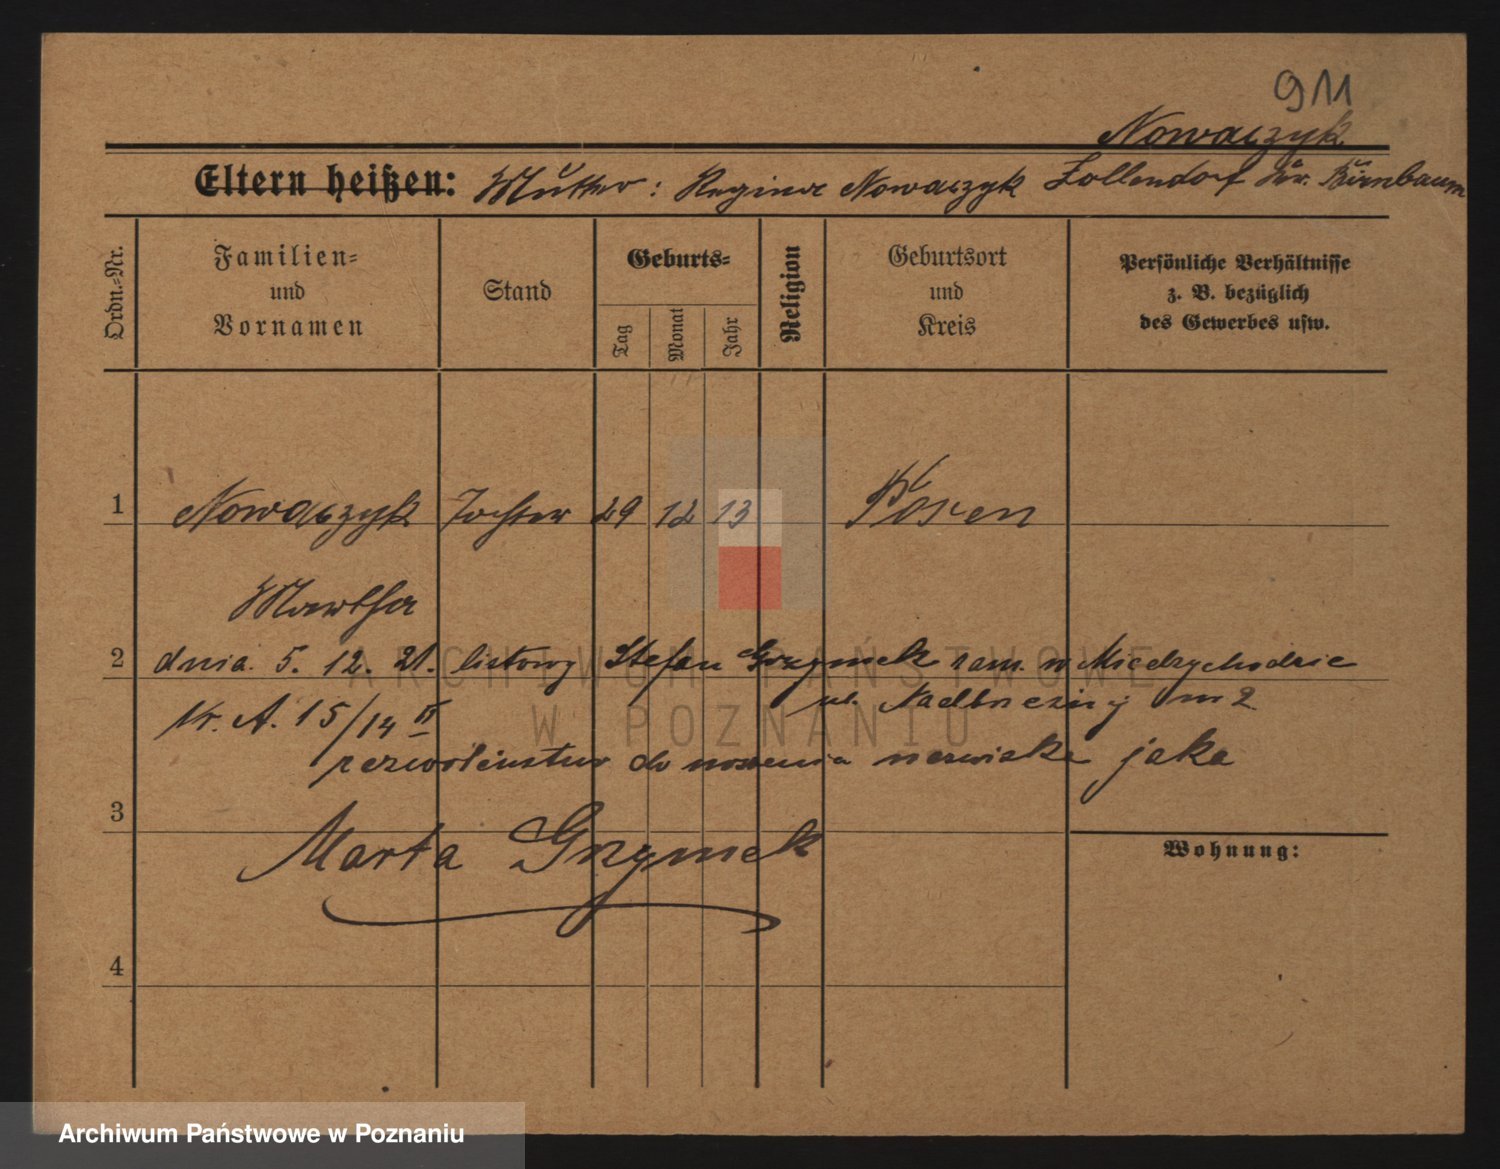 911
Nowaczyk
Eltern heißen: Mutter: Regina Nowaczyk Zollendorf Kr. Birnbaum
Ordn.-Nr.
Familien-
und
Vornamen
Stand
Geburts-
Tag
Monat
Jahr
Religion
Geburtsort
und
Kreis
Persönliche Verhältnisse
z. B. bezüglich
des Gewerbes usw.
1 Nowaczyk Tochter 29 12 13 Posen
Martha
2 dnia 5. 12. 21. Stefan Grzymek zam. w Międzychodzie
ul. nr 2
Nr. A. 15/14 II
zezwoleństwo do noszenia nazwiska jako
3
Marta Grzymek
Wohnung:
4
ARCHIWUM PAŃSTWOWE
W POZNANIU
Archiwum Państwowe w Poznaniu